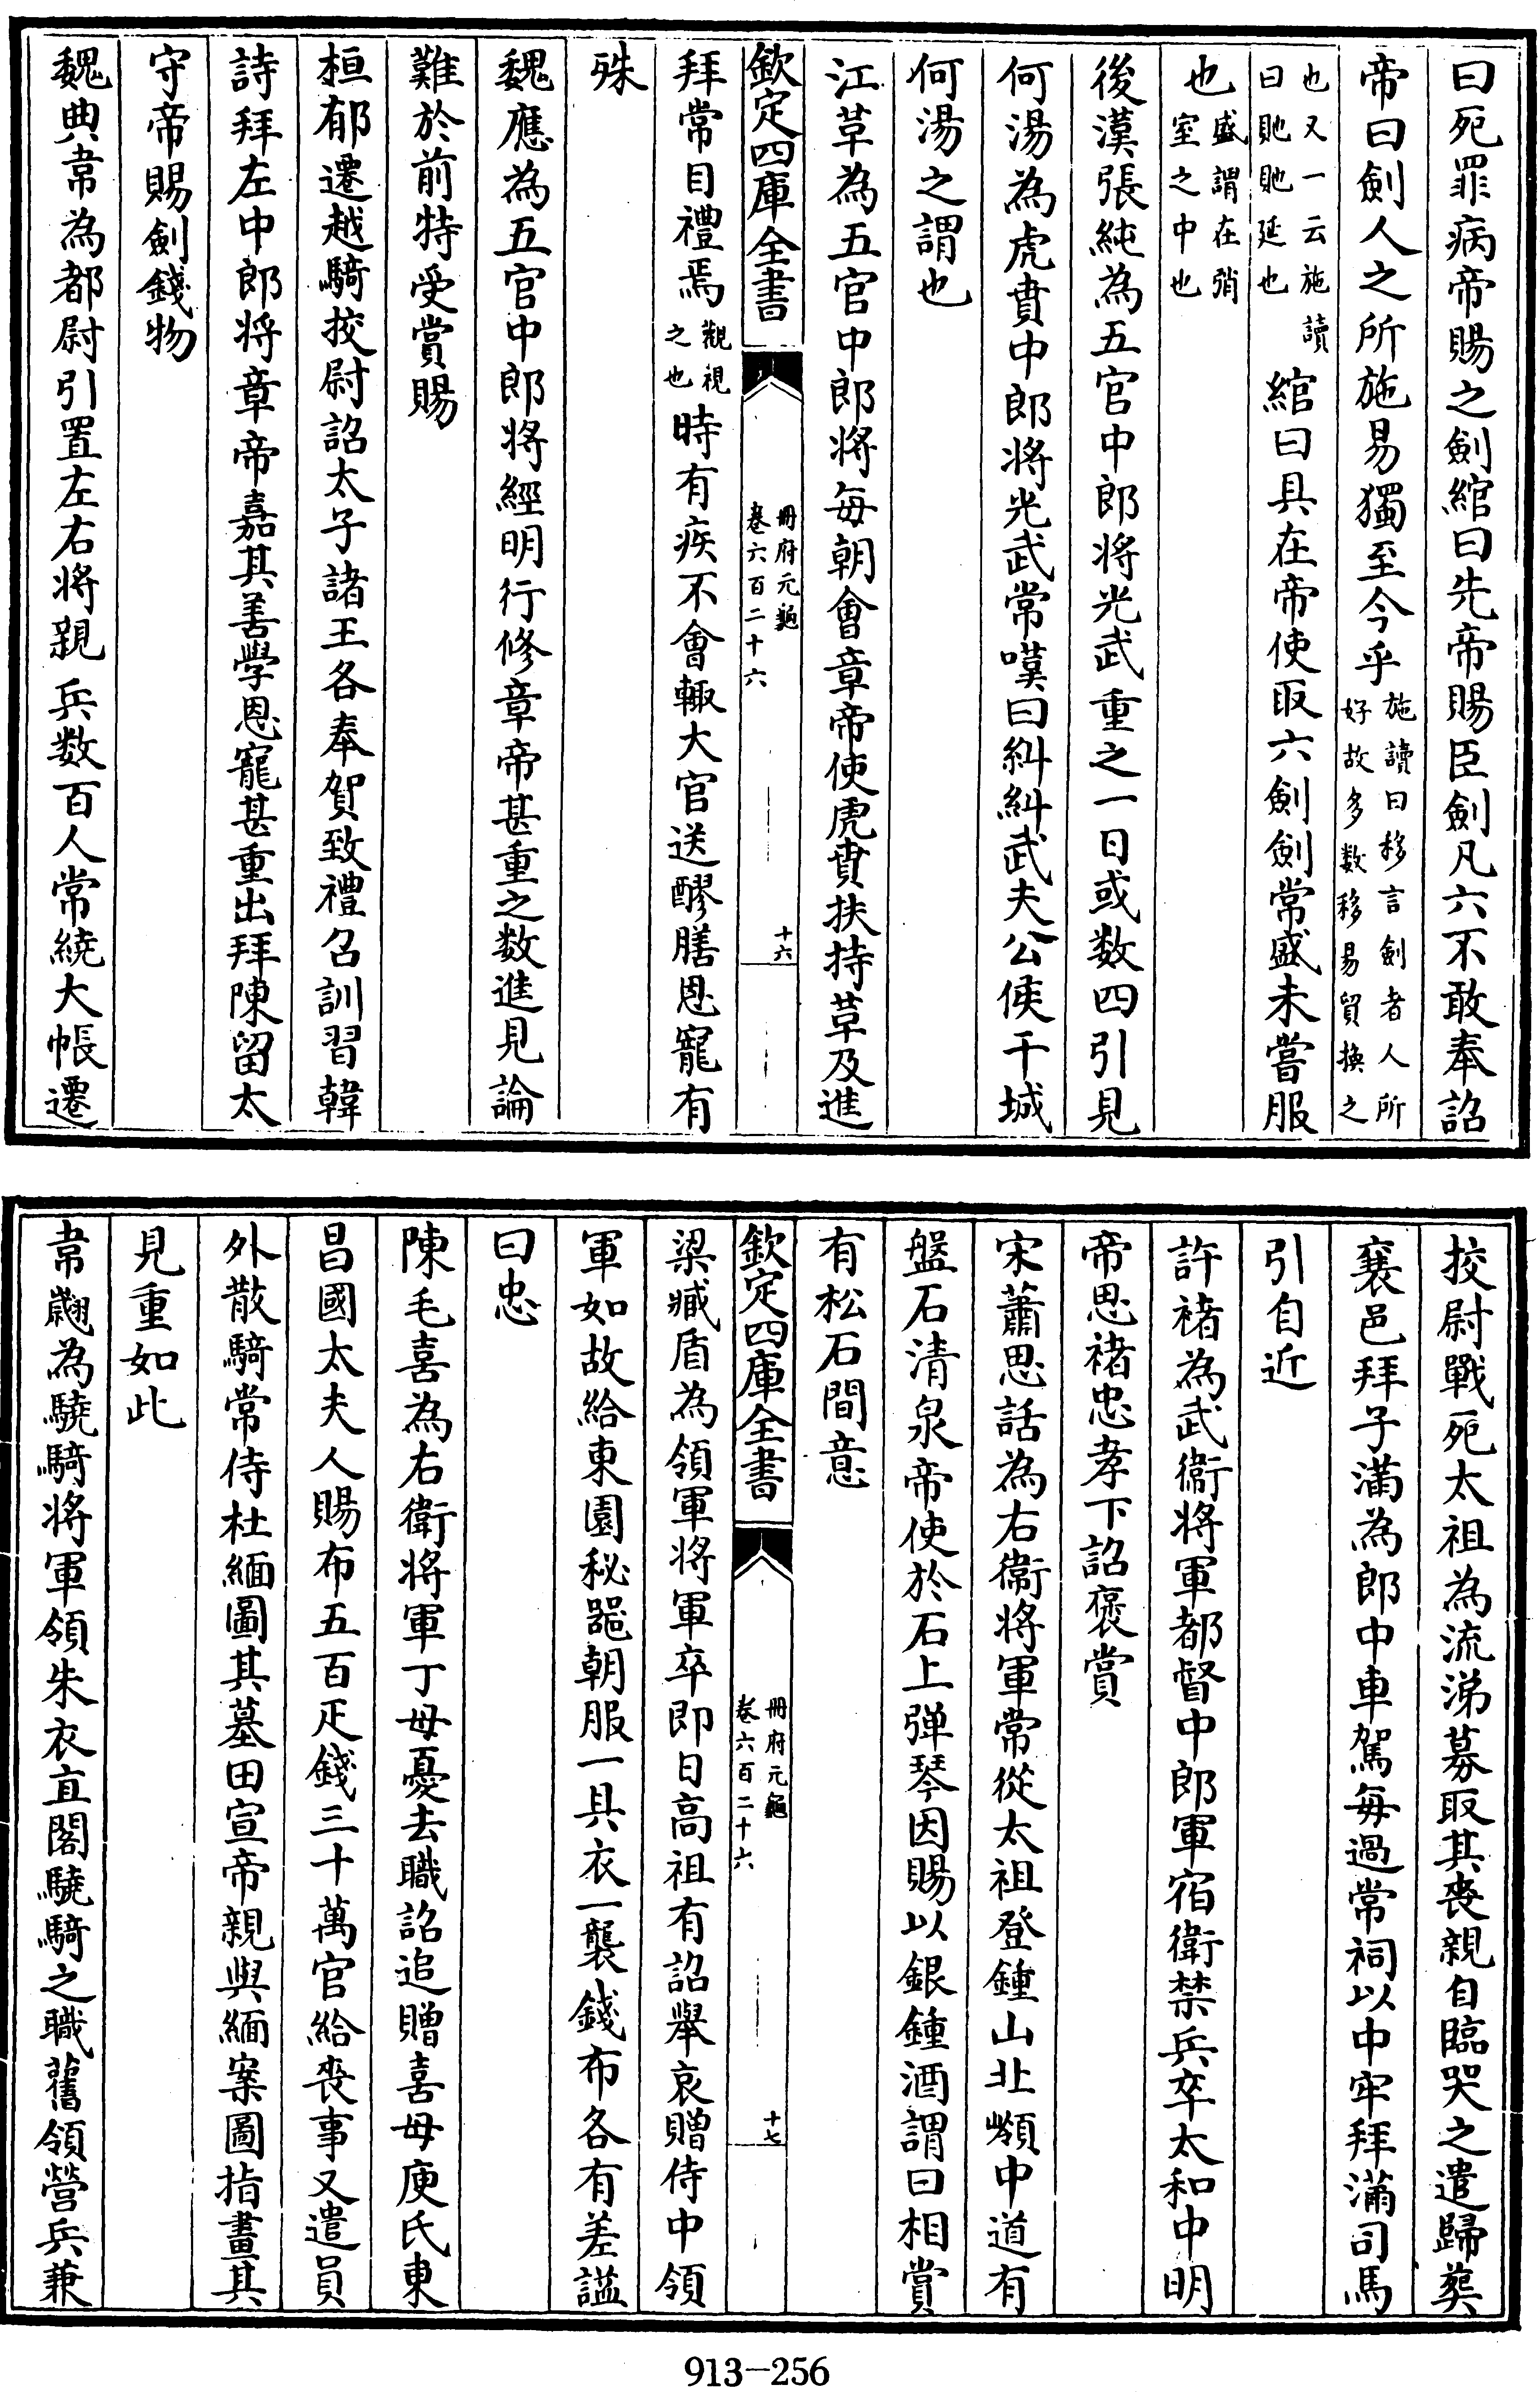 曰死罪病帝賜之劍綰曰先帝賜臣劍凡六不敢奉詔
帝曰劍人之所施易獨至今乎施讀曰移言劍者人所好故多数移易貿換之
也又一云施讀曰貤貤延也綰曰具在帝使取六劍劍常盛未嘗服
也盛謂在削室之中也
後漢張純為五官中郎将光武重之一日或数四引見
何湯為虎賁中郎将光武常嘆曰糾糾武夫公侯干城
何湯之謂也
江革為五官中郎将每朝會章帝使虎賁扶持革及進
欽定四庫全書
冊府元龜
卷六百二十六
十六
拜常目禮焉觀視之也時有疾不會輙大官送醪膳恩寵有
殊
魏應為五官中郎将經明行修章帝甚重之数進見論
難於前特受賞賜
桓郁遷越騎挍尉詔太子諸王各奉賀致禮召訓習韓
詩拜左中郎将章帝嘉其善學恩寵甚重出拜陳留太
守帝賜劍錢物
魏典韋為都尉引置左右将親兵数百人常繞大帳遷
挍尉戰死太祖為流涕募取其喪親自臨哭之遣歸葬
襄邑拜子滿為郎中車駕每過常祠以中牢拜滿司馬
引自近
許褚為武衛将軍都督中郎軍宿衛禁兵卒太和中明
帝思褚忠孝下詔襃賞
宋蕭思話為右衛将軍常從太祖登鍾山北嶺中道有
盤石清泉帝使於石上弹琴因賜以銀鍾酒謂曰相賞
有松石間意
欽定四庫全書
冊府元龜
卷六百二十六
十七
梁臧盾為領軍将軍卒即日高祖有詔舉哀贈侍中領
軍如故給東園秘噐朝服一具衣一襲錢布各有差諡
曰忠
陳毛喜為右衛将軍丁母憂去職詔追贈喜母庾氏東
昌國太夫人賜布五百疋錢三十萬官給喪事又遣員
外散騎常侍杜緬圖其墓田宣帝親與緬案圖指畫其
見重如此
韋翽為驍騎将軍領朱衣直閣驍騎之職舊領營兵兼
913-256